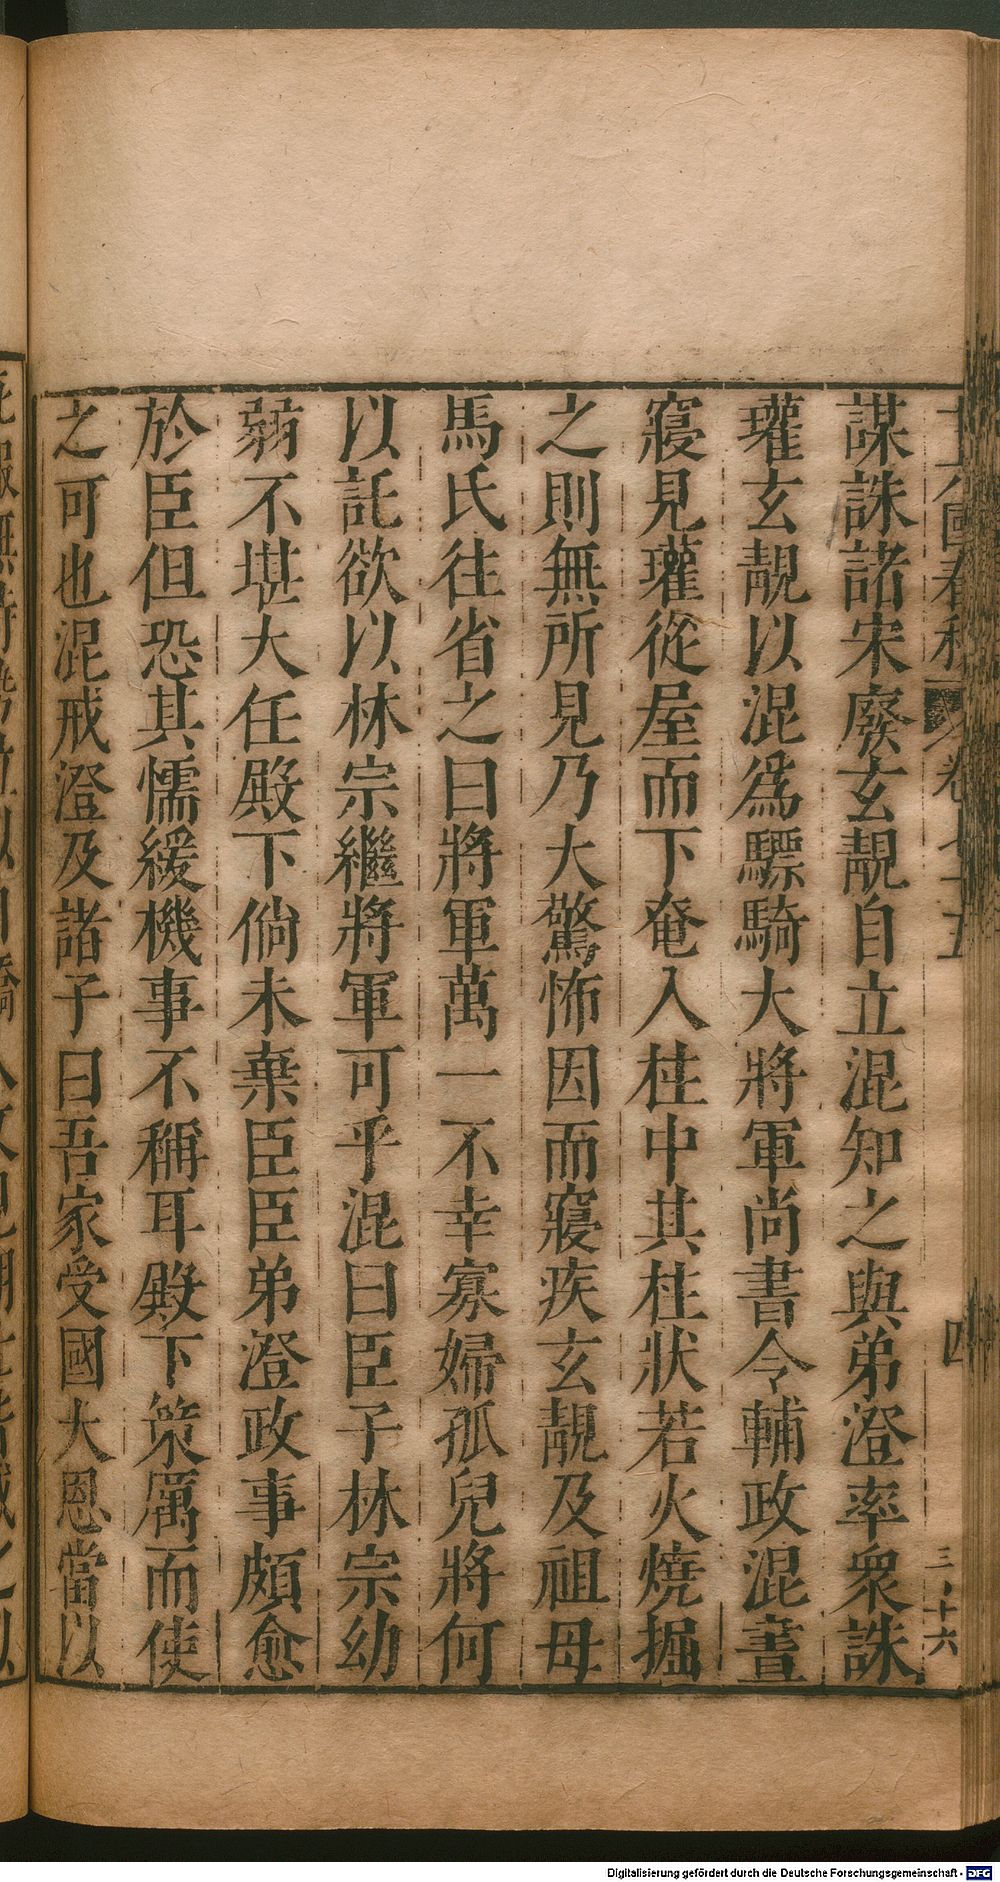 十六國春秋 卷七十五 四 三十六
謀誅諸宋廢玄靚自立混知之與弟澄率衆誅
瓘玄靚以混爲驃騎大將軍尚書令輔政混晝
寢見瓘從屋而下奄入柱中其柱狀若火燒掘
之則無所見乃大驚怖因而寢疾玄靚及祖母
馬氏往省之曰將軍萬一不幸寡婦孤兒將何
以託欲以林宗繼將軍可乎混曰臣子林宗幼
弱不堪大任殿下倘未棄臣臣弟澄政事頗愈
於臣但恐其懦緩機事不稱耳殿下策厲而使
之可也混戒澄及諸子曰吾家受國大恩當以
Digitalisierung gefördert durch die Deutsche Forschungsgemeinschaft - DFG